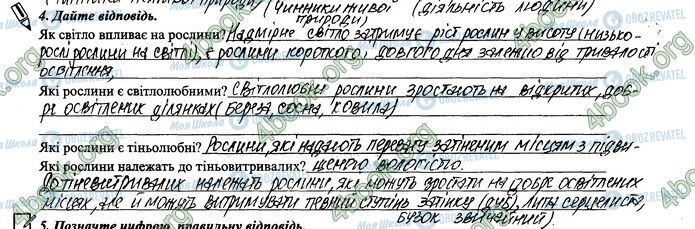 (чинники живої (діяльність людини)
природи)
4. Дайте відповідь.
Як світло впливає на рослини? Надмірне світло затримує ріст рослин у висоту (низько-
рослі рослини на світлі, є рослини короткого, довгого дня залежно від тривалості
освітлення
Які рослини є світлолюбними? Світлолюбні рослини зростають на відкритих, доб-
ре освітлених ділянках (береза, сосна, ковила)
Які рослини є тіньолюбні? Рослини, які надають перевагу затіненим місцям з підви-
Які рослини належать до тіньовитривалих? щеною вологістю.
До тіневитривалих належать рослини, які можуть зростати на добре освітлених
місцях, але й можуть витримувати певний ступінь затінку (дуб, липа серцелиста,
бузок звичайний).
5. Позначте цифрою, правильну відповідь.